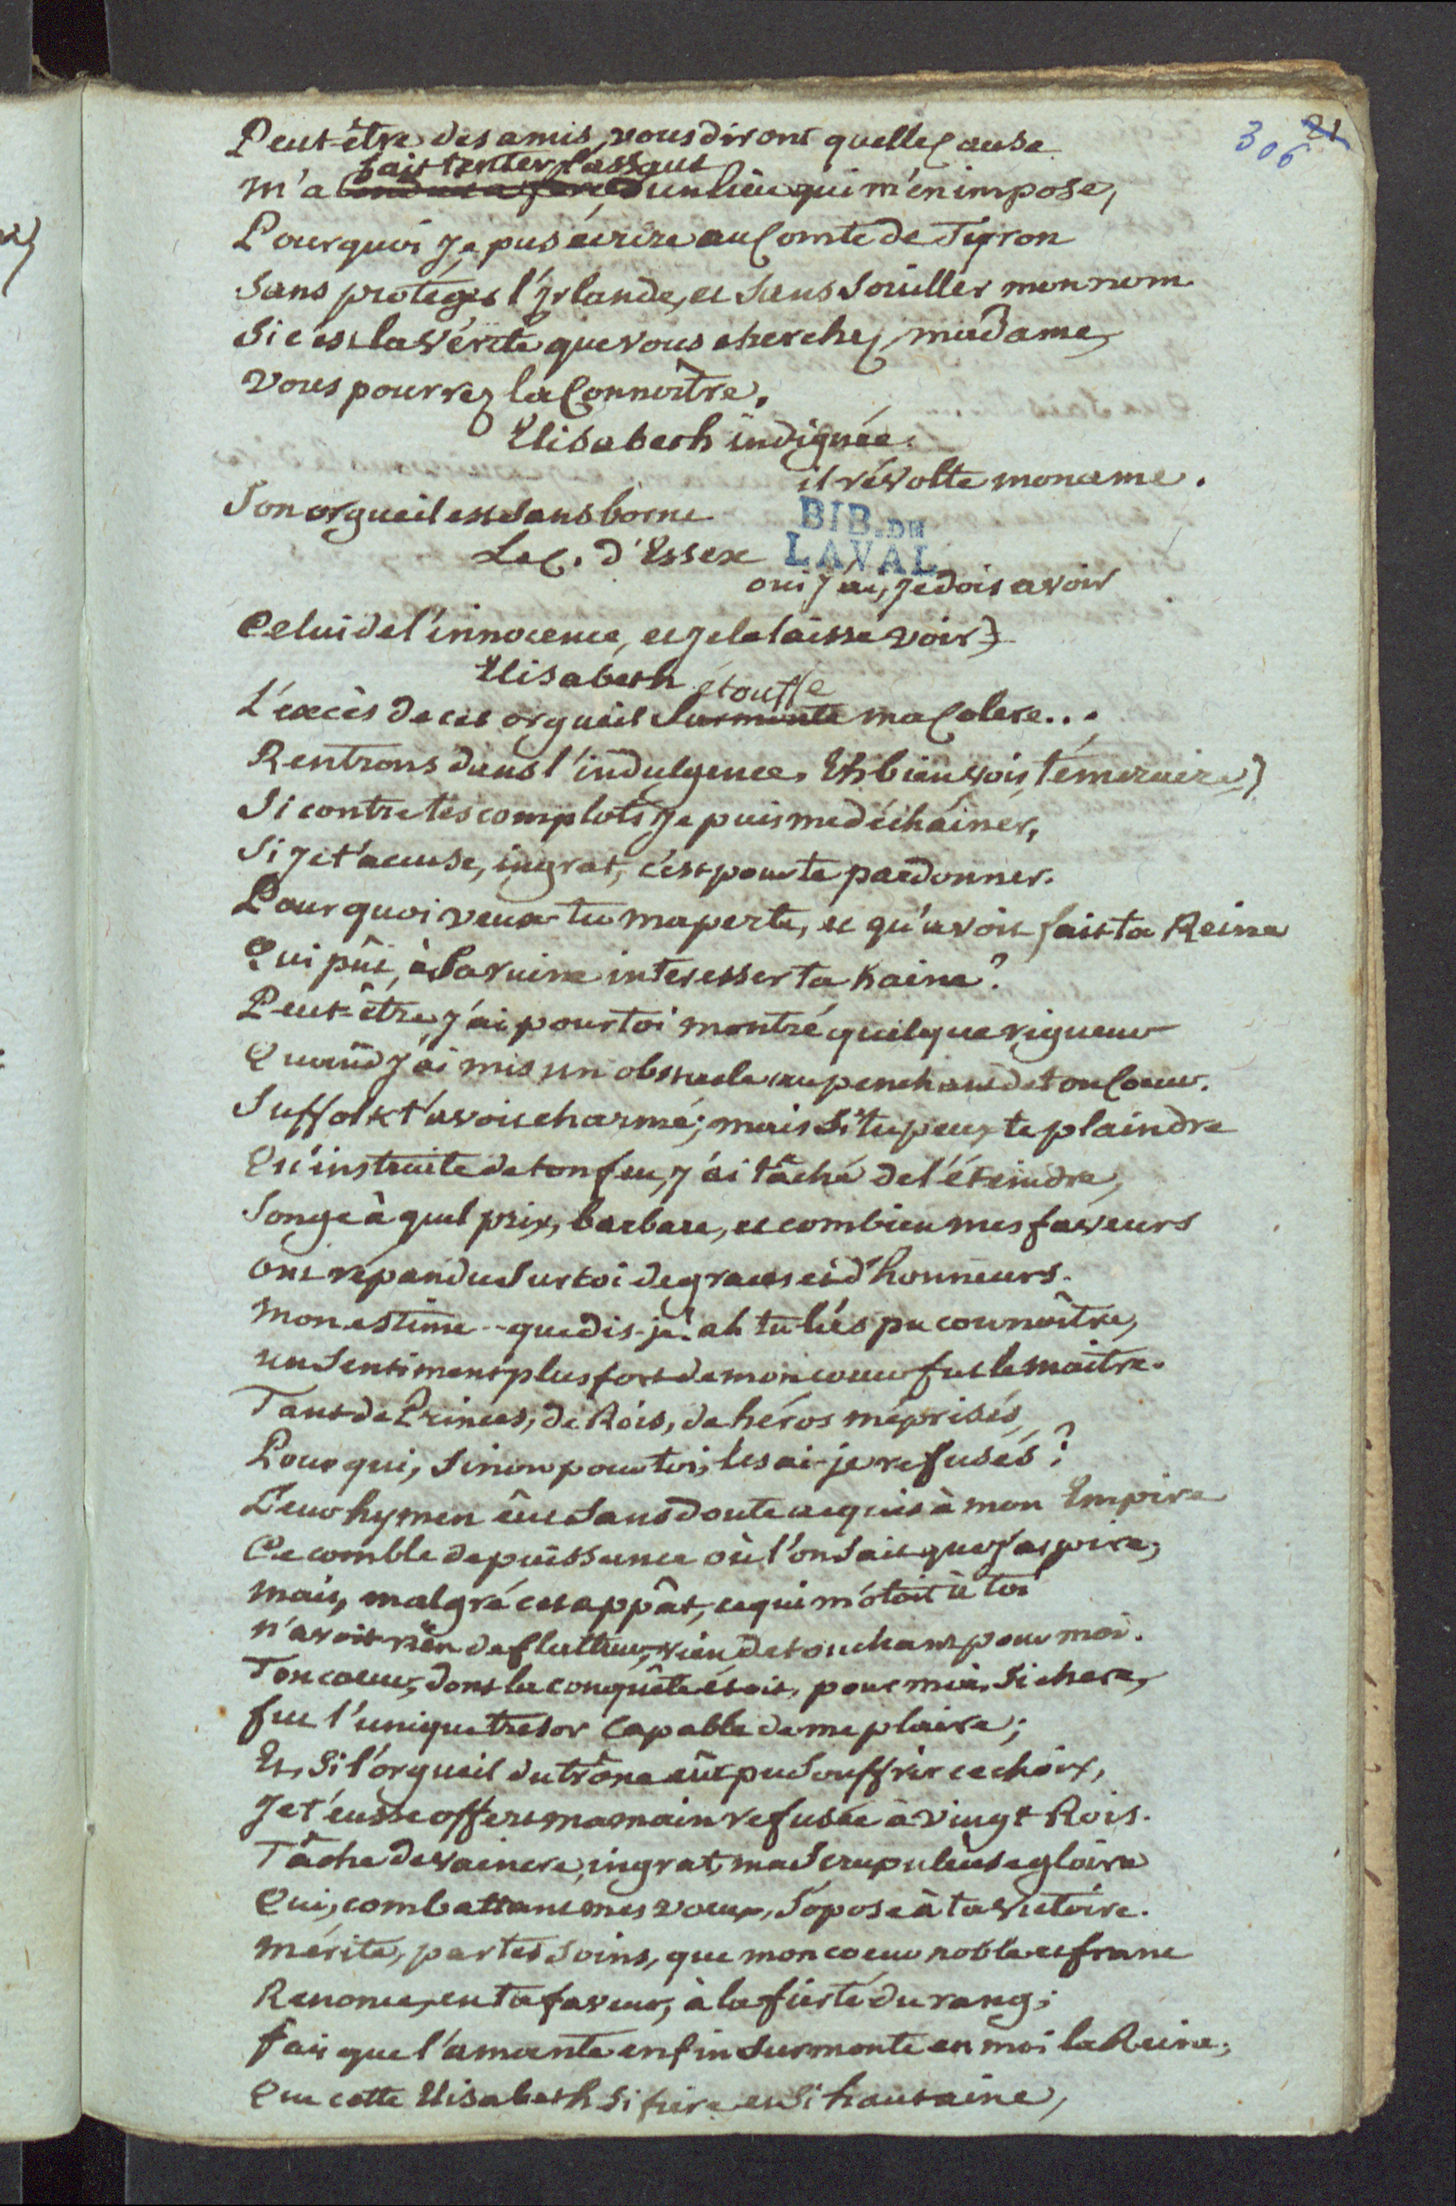 306 21
Peut-être des amis vous diront quelle Cause
fait tenter l'assaut
M'a d'un lieu qui m'en impose,
Pourquoi Je pus écrire au Comte de Tyron
Sans protéger l'Irlande, et Sans Souiller mon nom.
Si c'est la Vérité que vous cherchez, madame,
Vous pourrez la Connoître.
Elisabeth indignée.
il révolte mon ame.
Son orgueil est Sans borne
BIB. DE
LAVAL
Le C. d'Essex
oui J'ai, Je dois avoir
Celui de l'innocence, et je le laisse voir.
Elisabeth
étouffe
L'excès de cet orgueil Surmonte ma Colere...
Rentrons dans l'indulgence. Eh bien, vois, témeraire,
Si contre tes complots Je puis me déchaîner,
Si Je t'accuse, ingrat, c'est pour te pardonner.
Pourquoi veux-tu ma perte, et qu'avoit fait ta Reine
Qui pût, à Sa ruine interesser ta haine?
Peut-être, j'ai pour toi montré quelque rigueur
Quand J'ai mis un obstacle au penchant de ton Coeur.
Suffolk t'avoit charmé; mais Si tu peux te plaindre
Qu'instruite de ton feu, j'ai tâché de l'éteindre,
Songe à quel prix, barbare, et combien mes faveurs
ont répandu Sur toi de graces et d'honneurs.
Mon estime -- que dis-je! ah tu l'as pu connoître,
un Sentiment plus fort de mon coeur fut le maitre.
Tant de Princes, de Rois, de héros méprisés,
Pour qui, Sinon pour toi, les ai-je refusés?
Leur hymen eût Sans doute acquis à mon Empire
Ce comble de puissance où l'on Sait que J'aspire;
Mais, malgré cet appât, ce qui m'ôtoit à toi
N'avoit rien de flatteur, rien de touchant pour moi.
Ton coeur, dont la conquête étoit, pour moi, Si chere,
fut l'unique tresor Capable de me plaire;
Et, Si l'orgueil du trône eût pu Souffrir ce choix,
Je t'eusse offert ma main refusée à vingt Rois.
Tâche de vaincre, ingrat, ma Scrupuleuse gloire
Qui, combattant mes voeux, S'opose à ta victoire.
Mérite, par tes Soins, que mon coeur noble et franc
Renonce, en ta faveur, à la fierté du rang;
Fais que l'amante enfin Surmonte en moi la Reine;
Que cette Elisabeth Si fiere et Si hautaine,